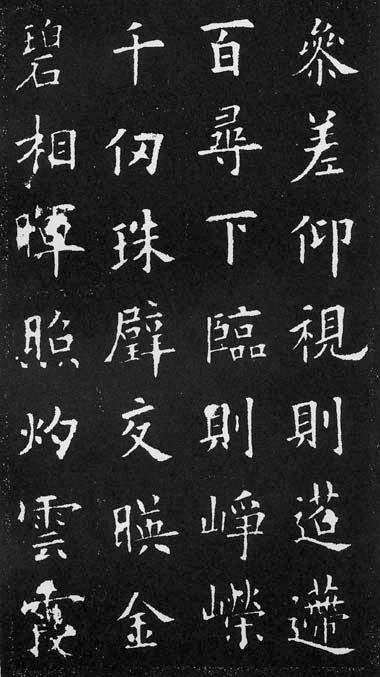 叅差仰視則迢遰
百尋下臨則崢嶸
千仞珠璧交暎金
碧相暉照灼雲霞